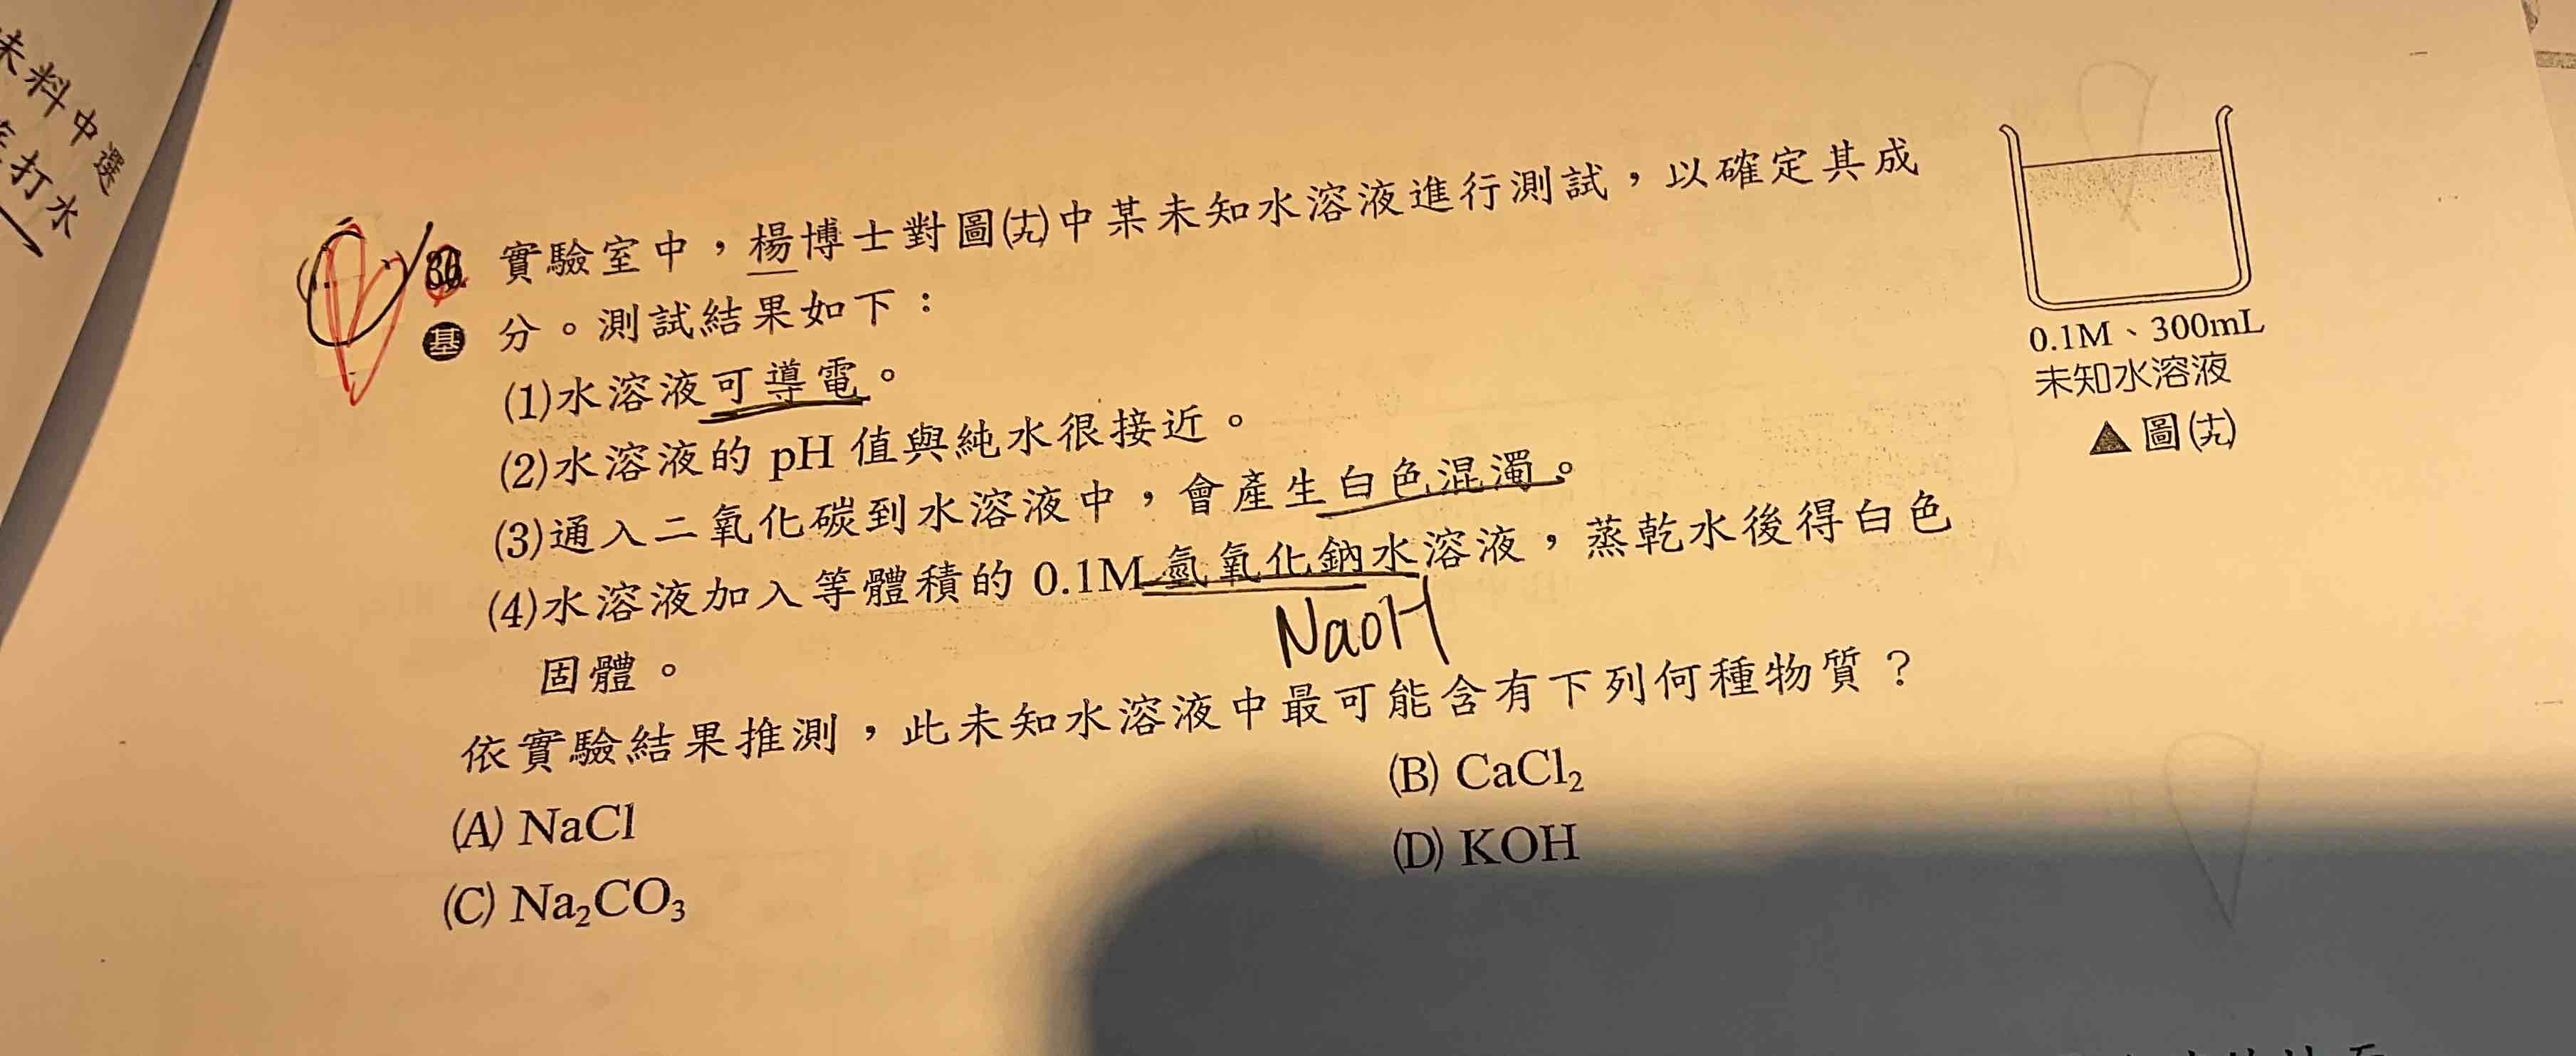 未料中選
打水
30. 實驗室中，楊博士對圖(十九)中某未知水溶液進行測試，以確定其成
基 分。測試結果如下：
(1)水溶液可導電。
(2)水溶液的 pH 值與純水很接近。
(3)通入二氧化碳到水溶液中，會產生白色混濁。
(4)水溶液加入等體積的 0.1M 氫氧化鈉水溶液，蒸乾水後得白色
NaOH
固體。
依實驗結果推測，此未知水溶液中最可能含有下列何種物質？
(A) NaCl
(B) CaCl₂
(C) Na₂CO₃
(D) KOH
0.1M、300mL
未知水溶液
▲圖(十九)